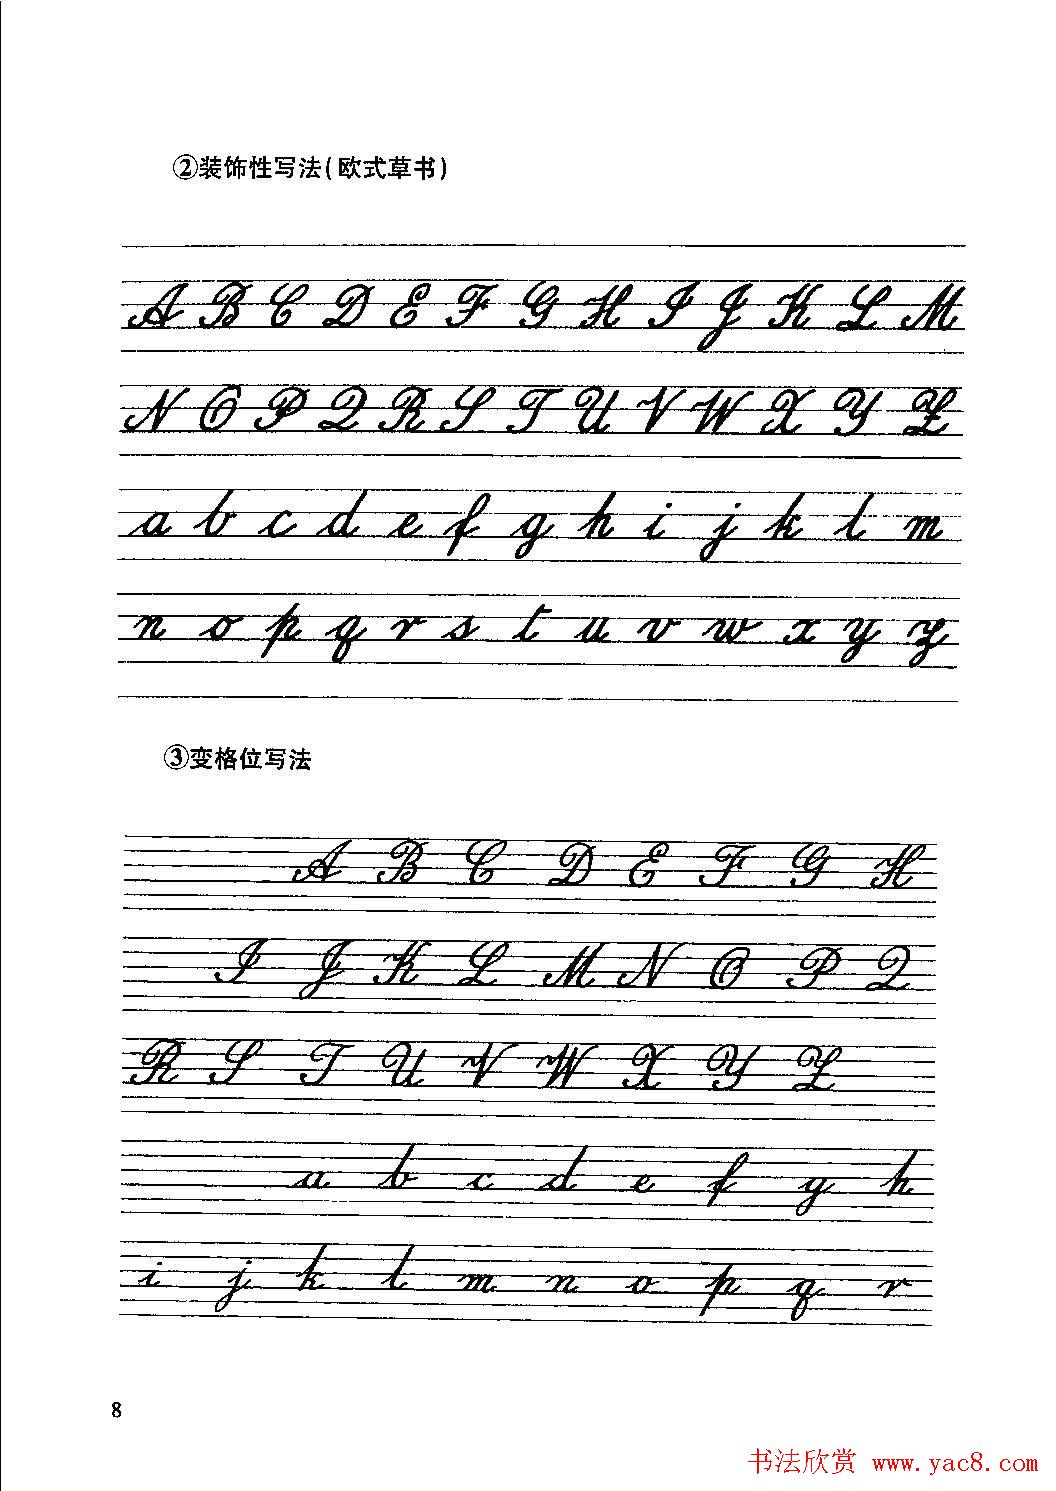 ②装饰性写法(欧式草书)
A B C D E F G H I J K L M
N O P Q R S T U V W X Y Z
a b c d e f g h i j k l m
n o p q r s t u v w x y z
③变格位写法
A B C D E F G H
I J K L M N O P Q
R S T U V W X Y Z
a b c d e f g h
i j k l m n o p q r
8
书法欣赏 www.yac8.com